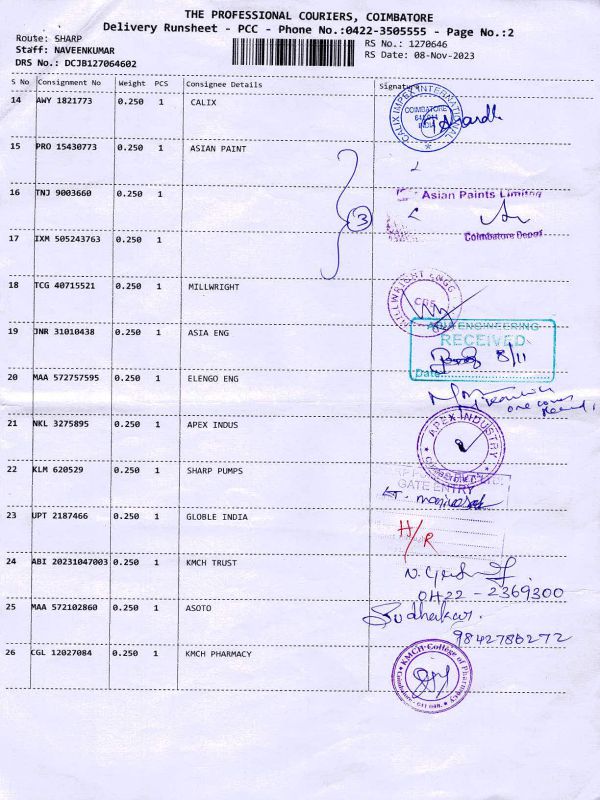 THE PROFESSIONAL COURIERS, COIMBATORE
Delivery Runsheet - PCC - Phone No.:0422-3505555 - Page No.:2
Route: SHARP
RS No.: 1270646
Staff: NAVEENKUMAR
RS Date: 08-Nov-2023
DRS No.: DCJB127064602
S No Consignment No Weight PCS Consignee Details Signature
14 AWY 1821773 0.250 1 CALIX
CALIX IMPEX INTERNATIONAL
COIMBATORE
INDIA
15 PRO 15430773 0.250 1 ASIAN PAINT
16 TNJ 9003660 0.250 1
Asian Paints Limited
3
17 IXM 505243763 0.250 1
Coimbatore Depot
18 TCG 40715521 0.250 1 MILLWRIGHT
MILLWRIGHT ENGG
CBE
19 JNR 31010438 0.250 1 ASIA ENG
ASIA ENGINEERING
RECEIVED
8/11
Date:
20 MAA 572757595 0.250 1 ELENGO ENG
one cover
21 NKL 3275895 0.250 1 APEX INDUS
APEX INDUSTRY
22 KLM 620529 0.250 1 SHARP PUMPS
GATE ENTRY
23 UPT 2187466 0.250 1 GLOBLE INDIA
H/R
24 ABI 20231047003 0.250 1 KMCH TRUST
0422 - 2369300
25 MAA 572102860 0.250 1 ASOTO
Sudhakar.
9842786272
26 CGL 12027084 0.250 1 KMCH PHARMACY
KMCH College of Pharmacy